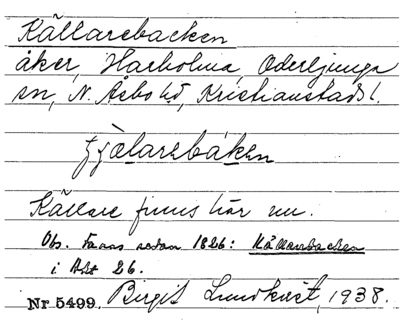 Källarebacken
åker, Harholma, Oderljunga
sn, N. Åsbo hd, Kristianstads l.
ɟjælarebáken
Källare finns här nu.
Obs. Fanns redan 1826: Källarebacken
i Akt 26.
Nr 5499. Birgit Lundkvist, 1938.